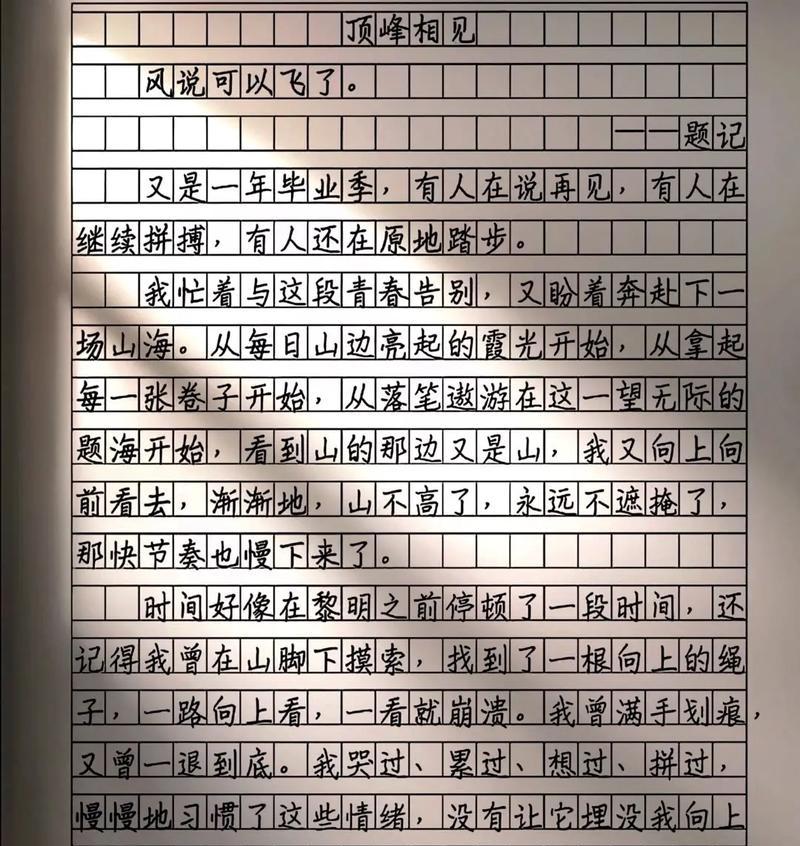 顶峰相见
风说可以飞了。
——题记
又是一年毕业季，有人在说再见，有人在
继续拼搏，有人还在原地踏步。
我忙着与这段青春告别，又盼着奔赴下一
场山海。从每日山边亮起的霞光开始，从拿起
每一张卷子开始，从落笔遨游在这一望无际的
题海开始，看到山的那边又是山，我又向上向
前看去，渐渐地，山不高了，永远不遮掩了，
那快节奏也慢下来了。
时间好像在黎明之前停顿了一段时间，还
记得我曾在山脚下摸索，找到了一根向上的绳
子，一路向上看，一看就崩溃。我曾满手划痕，
又曾一退到底。我哭过、累过、想过、拼过，
慢慢地习惯了这些情绪，没有让它埋没我向上